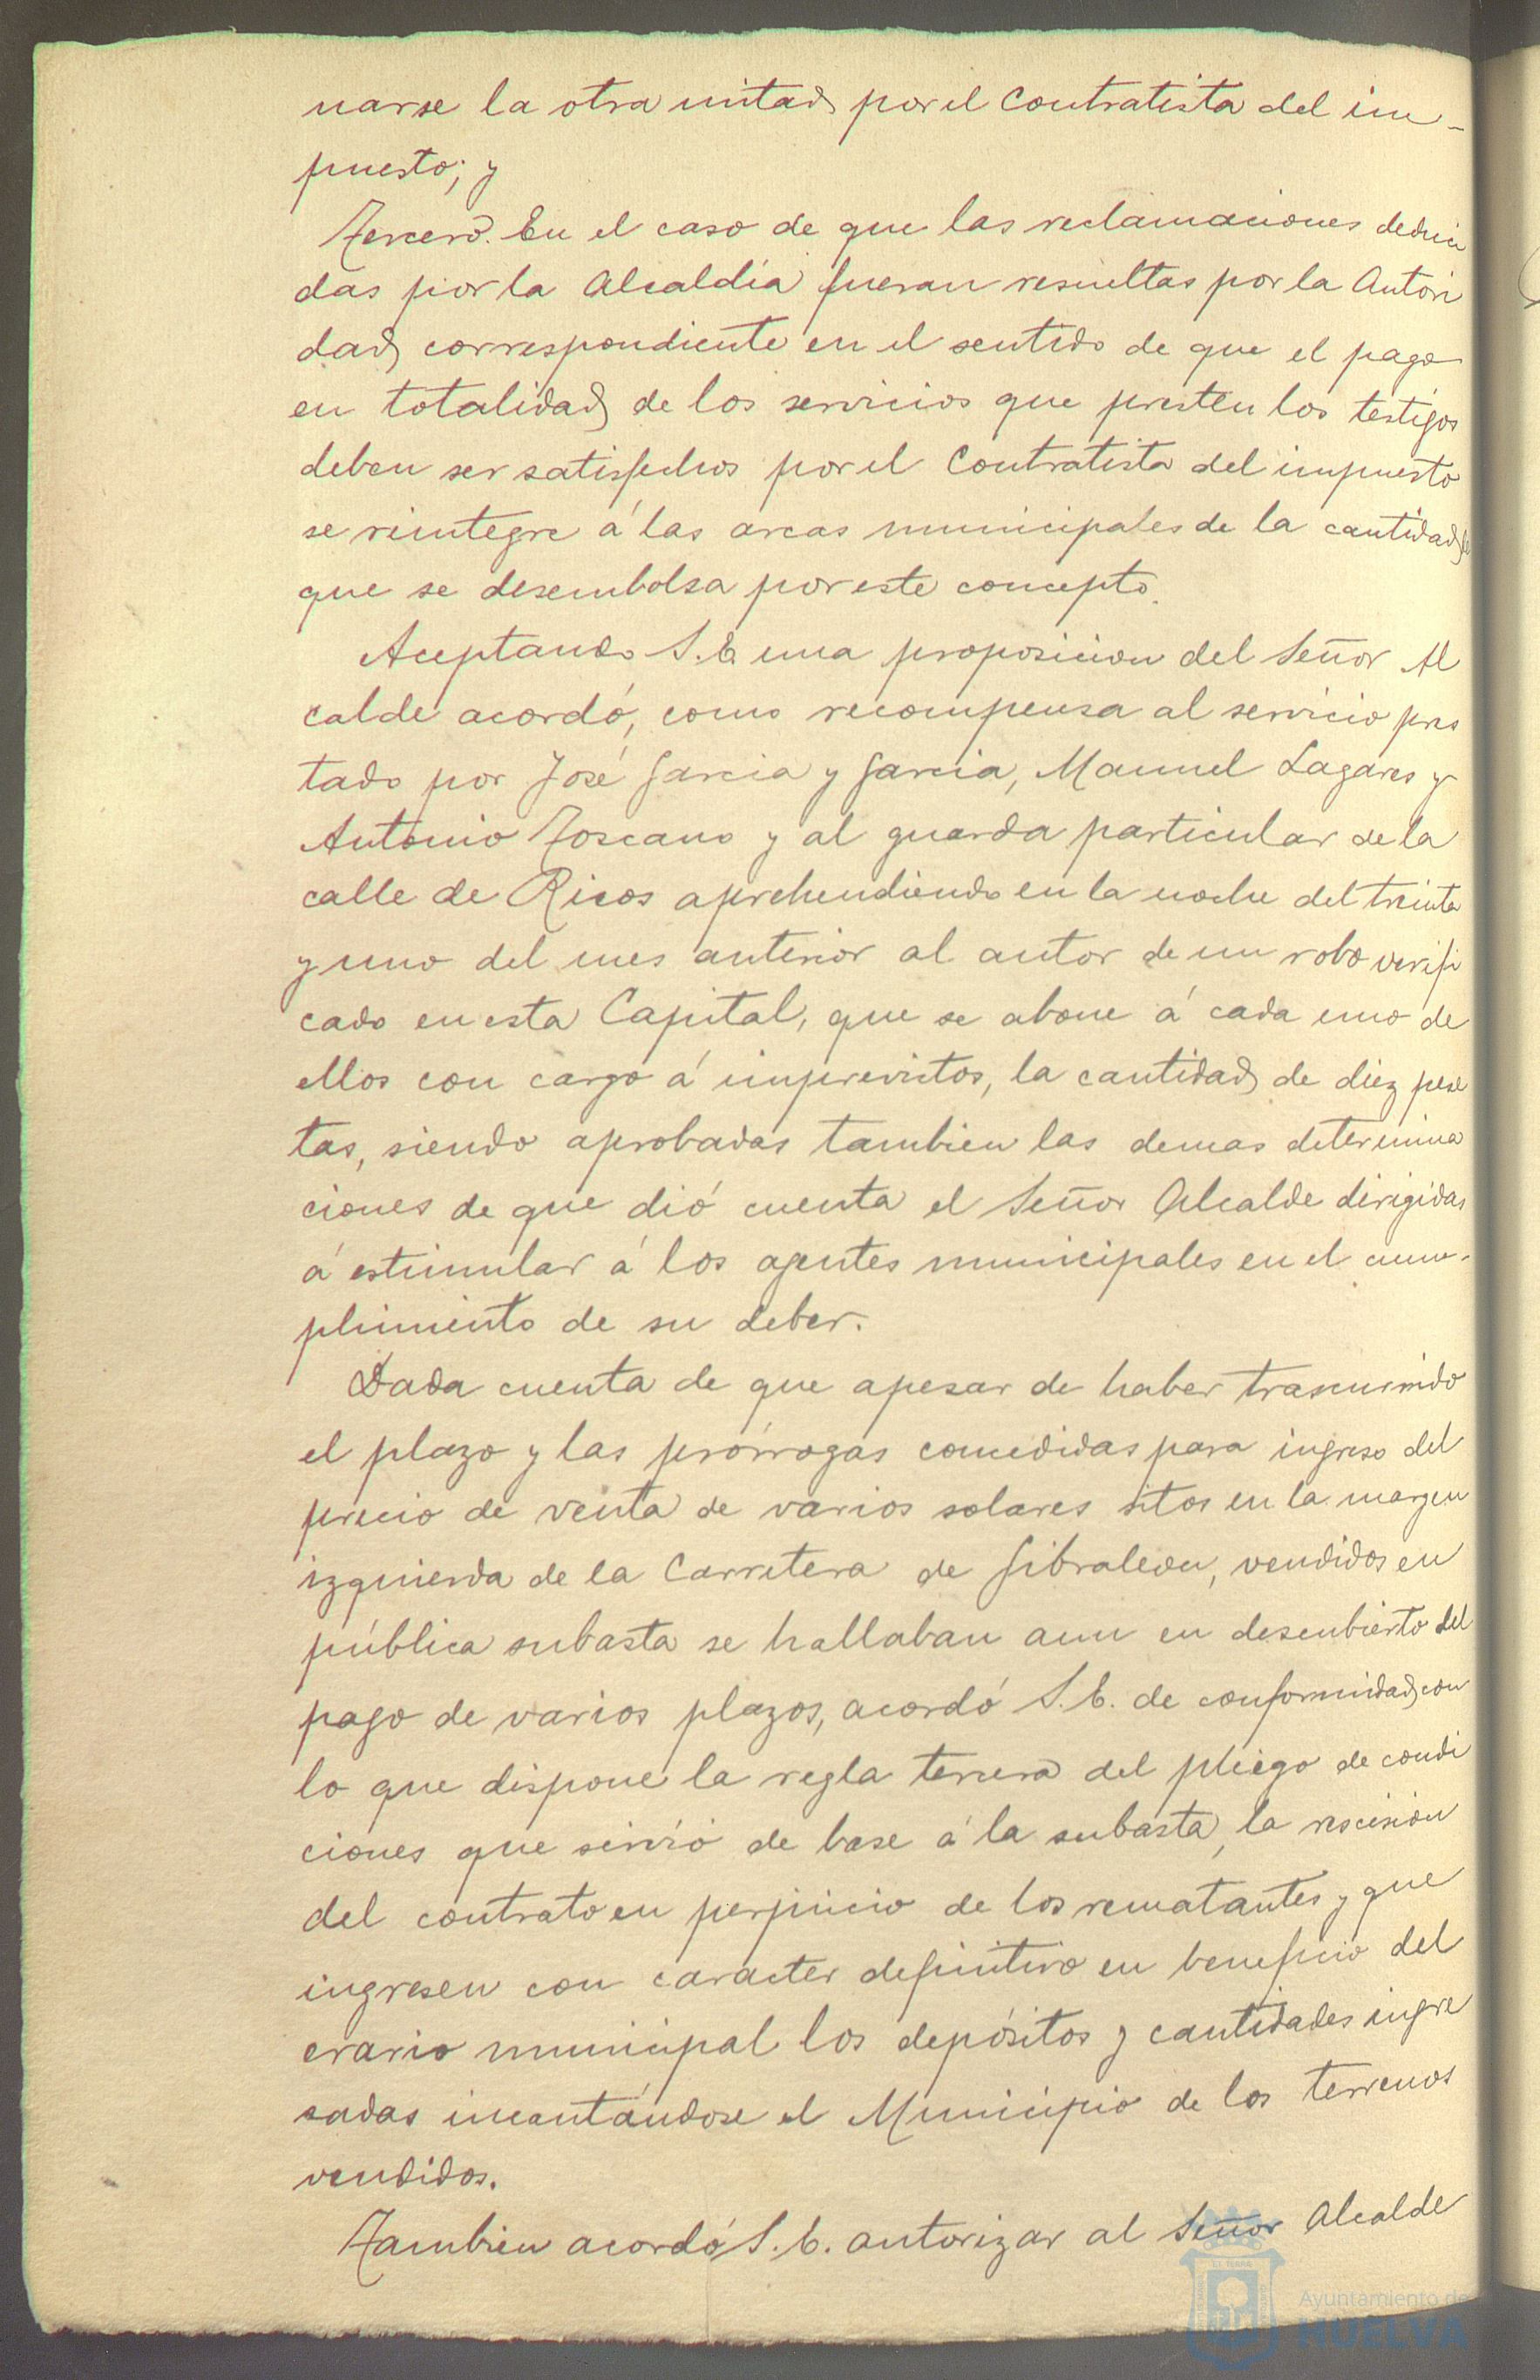 narse la otra mitad por el Contratista del im-
puesto; y
Tercero. En el caso de que las reclamaciones deduci
das por la Alcaldia fueran resueltas por la Autori
dad correspondiente en el sentido de que el pago
en totalidad de los servicios que presten los testigos
deben ser satisfechos por el Contratista del impuesto
se reintegre á las arcas municipales de la cantidad
que se desembolsa por este concepto.
Aceptando S. E. una proposicion del Señor Al
calde acordó, como recompensa al servicio pres
tado por José Garcia y Garcia, Manuel Lagares y
Antonio Toscano y al guarda particular de la
calle de Ricos aprehendiendo en la noche del treinta
y uno del mes anterior al autor de un robo verifi
cado en esta Capital, que se abone á cada uno de
ellos con cargo á imprevistos, la cantidad de diez pese
tas, siendo aprobadas tambien las demas determina
ciones de que dió cuenta el Señor Alcalde dirigidas
á estimular á los agentes municipales en el cum-
plimiento de su deber.
Dada cuenta de que apesar de haber trascurrido
el plazo y las prórrogas concedidas para ingreso del
precio de venta de varios solares sitos en la margen
izquierda de la Carretera de Gibraleon, vendidos en
pública subasta se hallaban aun en descubierto del
pago de varios plazos, acordó S. E. de conformidad con
lo que dispone la regla tercera del pliego de condi
ciones que sirvió de base á la subasta, la rescisión
del contrato en perjuicio de los rematantes y que
ingresen con caracter definitivo en beneficio del
erario municipal los depósitos y cantidades ingre
sadas incantándose el Municipio de los terrenos
vendidos.
Tambien acordó S. E. autorizar al Señor Alcalde
Ayuntamiento de
HUELVA